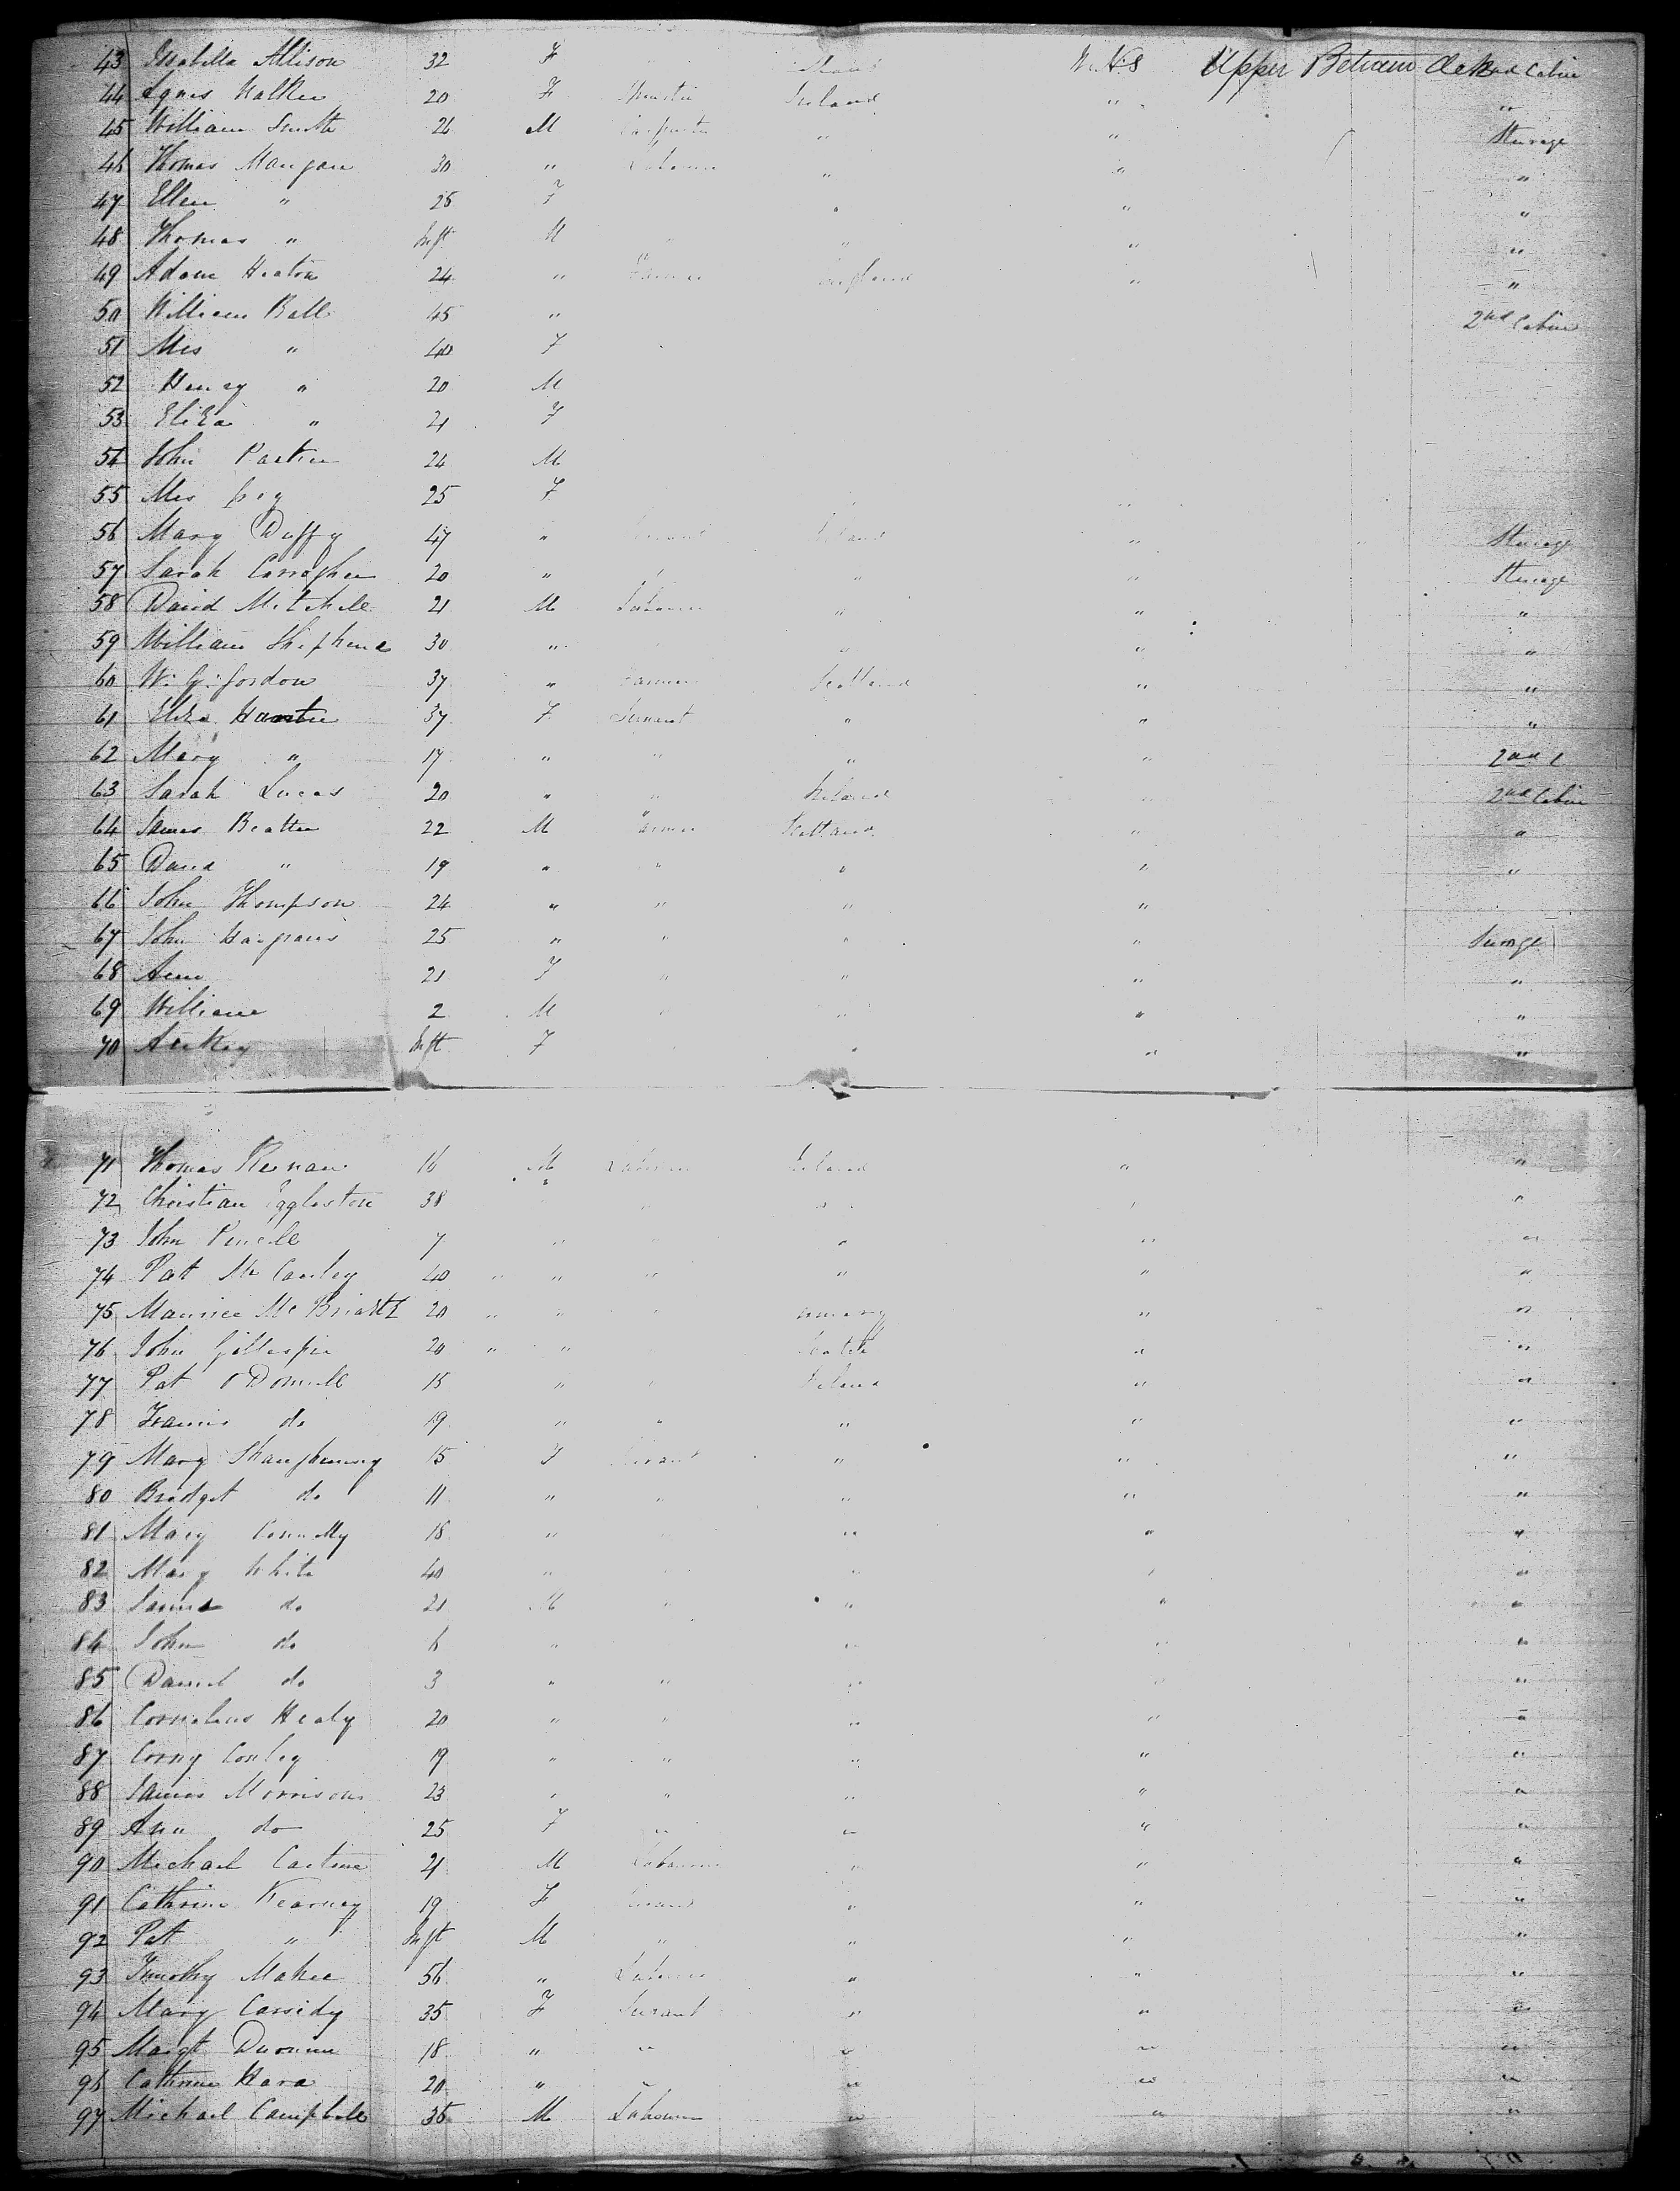 43 Isabella Allison 32 F U.S Upper Between deck 2nd Cabin
44 Agnes Walker 20 F Spinster Ireland " "
45 William Smith 26 M Carpenter " " Sterage
46 Thomas Mangan 30 " Laborer " " "
47 Ellen " 25 F " " "
48 Thomas " Inft M " " "
49 Adam Heaton 24 " Farmer England " "
50 William Ball 45 " 2nd Cabin
51 Mrs " 40 F
52 Henry " 20 M
53 Eliza " 21 F
54 John 24 M
55 Mrs 25 F
56 Mary Duffy 47 " Servant Ireland " Sterage
57 Sarah 20 " " " " Sterage
58 David Mitchell 21 M Laborer " " "
59 William 30 " " " "
60 W. G. Gordon 37 " Farmer Scotland " "
61 Eliza 37 F Servant " " "
62 Mary " 17 " " " " 2nd C
63 Sarah Lucas 20 " " Ireland " 2nd Cabin
64 James Beattie 22 M Farmer Scotland " "
65 David " 19 " " " " "
66 John Thompson 24 " " " "
67 John 25 " " " " Sterage
68 Ann 21 F " " " "
69 William 2 M " " " "
70 Inft F " " "
71 Thomas Keenan 16 M Laborer Ireland " "
72 Christian Eggleston 38 " " " " "
73 John 7 " " " " "
74 Pat Mc Cauley 40 " " " " " "
75 Maurice Mc 20 " " " " "
76 John Gillespie 20 " " Scotch " "
77 Pat O Donnell 15 " " Ireland " "
78 Francis do 19 " " " " "
79 Mary Shaughnessy 15 F Servant " " "
80 Bridget do 11 " " " " "
81 Mary Connolly 18 " " " "
82 Mary White 40 " " " "
83 James do 21 M " " " "
84 John do 6 " " " "
85 Daniel do 3 " " " " "
86 Cornelius Healy 20 " " " " "
87 Corny Conley 19 " " " " "
88 James Morrison 23 " " " " "
89 Ann do 25 F " " " "
90 Michael 21 M Labourer " " "
91 Cathrine Kearney 19 F Servant " " "
92 Pat " Inft M " " " "
93 Timothy Maher 56 " Laborer " " "
94 Mary Cassidy 35 F Servant " " "
95 Margt 18 " " " " "
96 Cathrine Hara 20 " " " " "
97 Michael Campbell 35 M Labourer " " "